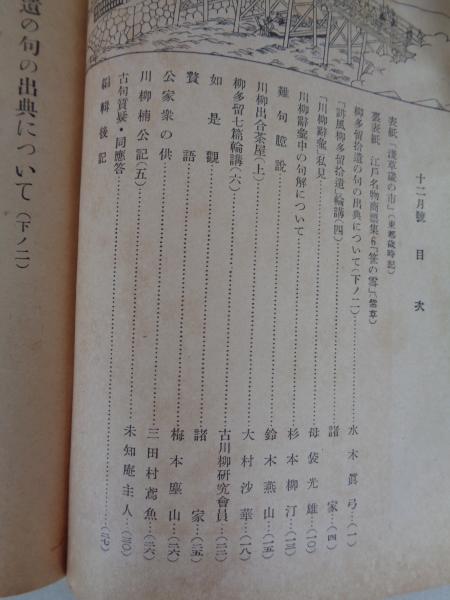 十二月號 目次
表紙「淺草歳の市」(東都歳時記)
裏表紙 江戸名物商票集6「笹の雪」(當草)
柳多留拾遺の句の出典について(下ノ二)…水木眞弓…(一)
「誹風柳多留拾遺」輪講(四)…諸家…(四)
「川柳辭彙」私見…母袋光雄…(一〇)
川柳辭彙中の句解について…杉本柳汀…(一三)
難句臆說…鈴木燕山…(一五)
川柳出合茶屋(上)…大村沙華…(一八)
柳多留七篇輪講(六)…古川柳研究會員…(二二)
如是觀…諸家…(二五)
贅語…梅本塵山…(二六)
公家衆の供
川柳楠公記(五)…三田村鳶魚…(二六)
古句質疑・同應答…未知庵主人…(三〇)
編輯後記…(三七)
遺の句の出典について(下ノ二)